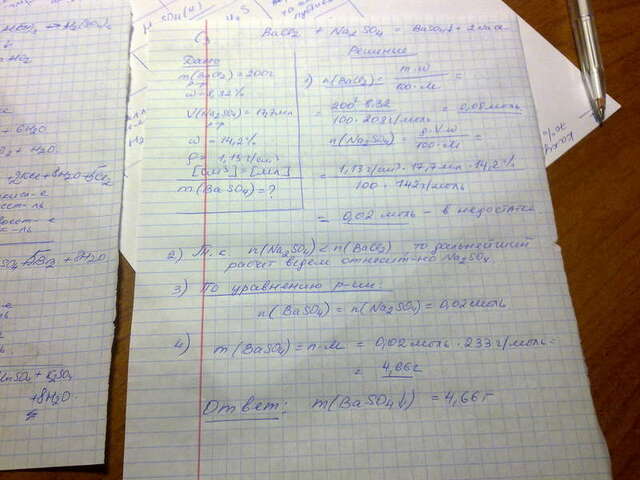 C3 BaCl2 + Na2SO4 = BaSO4↓ + 2NaCl
Решение
Дано
m(BaCl2) = 200г
р-р
ω = 8,32%
V(Na2SO4) = 17,7мл
р-р
ω = 14,2%
ρ = 1,13г/см³
[см³] = [мл]
m(BaSO4) = ?
1) n(BaCl2) = m·ω / 100·M =
= 200·8.32 / 100·208г/моль = 0,08 моль
n(Na2SO4) = ρ·V·ω / 100·M =
= 1,13г/см³·17,7мл·14,2% / 100·142г/моль
= 0,02 моль - в недостат.
2) Т.к n(Na2SO4) < n(BaCl2) то дальнейший
расчёт ведем относит-но Na2SO4.
3) По уравнению р-ии:
n(BaSO4) = n(Na2SO4) = 0,02моль
4) m(BaSO4) = n·M = 0,02моль·233г/моль =
= 4,66г
Ответ: m(BaSO4↓) = 4,66г
+ 6H2O
+ H2O
+8H2O
+ K2SO4
+8H2O